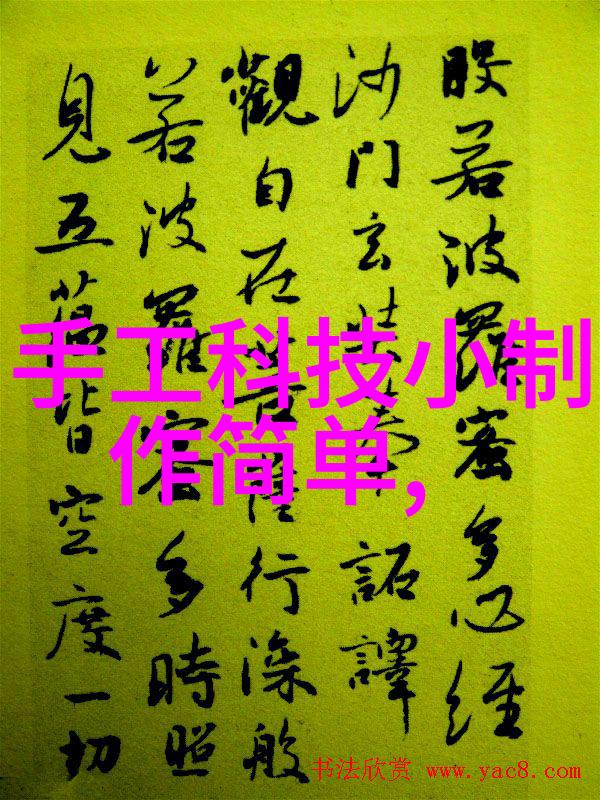 般若波羅蜜多心經
沙門玄奘奉詔譯
觀自在菩薩行深般
若波羅蜜多時照
見五蘊皆空度一切
手工科技小制
作简单,
书法欣赏 www.yac8.com